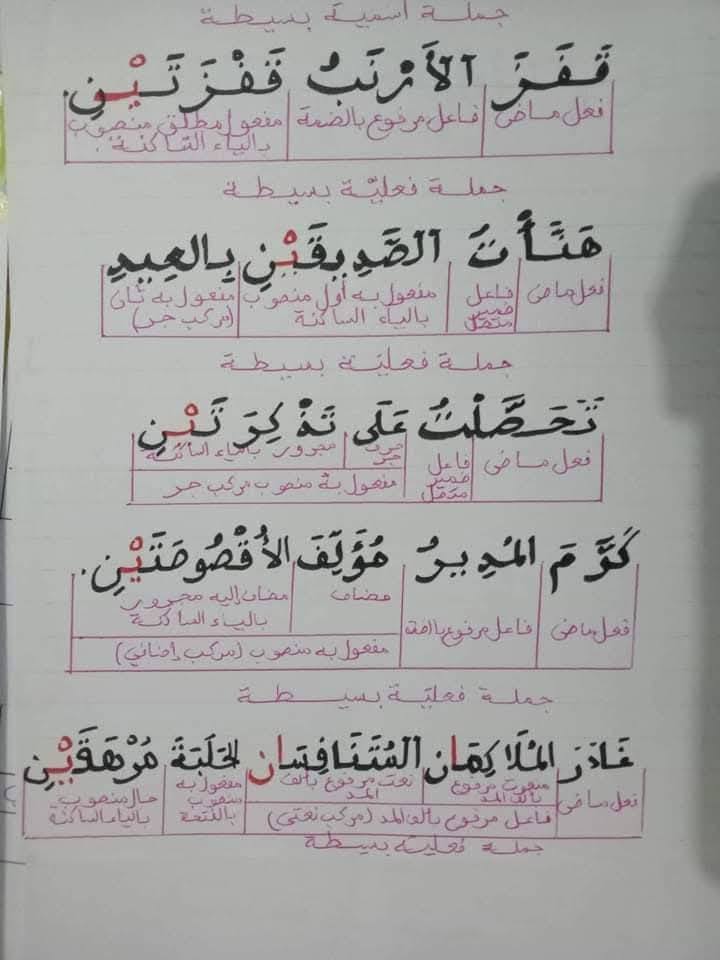 جملة اسمية بسيطة
قَفَزَ الأَرْنَبُ قَفْزَتَيْنِ.
فعل ماض فاعل مرفوع بالضمة مفعول مطلق منصوب
بالياء الساكنة
جملة فعليّة بسيطة
هَنَّأْتُ الصَّدِيقَيْنِ بِالعِيدِ
فعل ماض فاعل ضمير متصل مفعول به أول منصوب بالياء الساكنة مفعول به ثان (مركب جر)
جملة فعليّة بسيطة
تَحَصَّلْتُ عَلَى تَذْكِرَتَيْنِ
فعل ماض فاعل ضمير متصل حرف جر مجرور بالياء الساكنة
مفعول به منصوب مركب جر
كَرَّمَ المُدِيرُ مُؤَلِّفَ الأُقْصُوصَتَيْنِ.
مضاف مضاف إليه مجرور
بالياء الساكنة
فعل ماض فاعل مرفوع
مفعول به منصوب (مركب إضافي)
جملة فعليّة بسيطة
غَادَرَ المُلَاكِمَانِ المُتَنَافِسَانِ الحَلَبَةَ مُرْهَقَيْنِ
فعل ماض منعوت مرفوع بألف المد نعت مرفوع بألف المد مفعول به منصوب بالفتحة حال منصوب بالياء الساكنة
فاعل مرفوع بألف المد (مركب نعتي)
جملة فعلية بسيطة